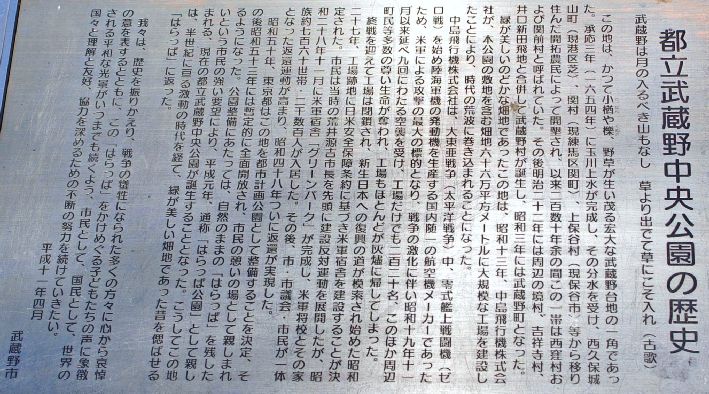 都立武蔵野中央公園の歴史
武蔵野は月の入るべき山もなし 草より出でて草にこそ入れ(古歌)
この地は、かつて小楢や櫟、野草が生い茂る宏大な武蔵野台地の一角であっ
た。承応三年(一六五四年)に玉川上水が完成し、その分水を受け、西久保城
山町(現港区芝)、関村(現練馬区関町)、上保谷村(現保谷市)等から移り
住んだ開拓農民によって開墾され、以来二百数十年余の間この一帯は西窪村お
よび関前村と呼ばれていた。その後明治二十二年には周辺の境村、吉祥寺村、
井口新田飛地と合併して武蔵野村が誕生し、昭和三年には武蔵野町となった。
緑が美しいのどかな畑地であったこの地は、昭和十三年、中島飛行機株式会
社が、本公園の敷地を含む畑地六十六万平方メートルに大規模な工場を建設し
たことにより、時代の荒波に巻き込まれることになった。
中島飛行機株式会社は、大東亜戦争(太平洋戦争)中、零式艦上戦闘機(ゼ
ロ戦)を始め陸海軍機の発動機を生産する国内随一の航空機メーカーであった
ため、米軍による攻撃の最大の標的となり、戦争の激化に伴い昭和十九年十一
月以来延べ九回にわたる空襲を受け、工場だけでも二百二十名、このほか周辺
町民等多数の尊い生命が奪われ、工場もほとんどが灰燼に帰してしまった。
終戦を迎えて工場は閉鎖され、新生日本への復興の道が模索され始めた昭和
二十七年、工場跡地に日米安全保障条約に基づき米軍宿舎を建設することが決
定された。市民は当時の荒井源吉市長を先頭に建設反対運動を展開したが、昭
和二十八年十一月に米軍宿舎「グリーンパーク」が完成し、米軍将校とその家
族約七百六十世帯・二千数百人が入居した。その後、市・市議会・市民が一体
となった返還運動が高まり、昭和四十八年ついに返還が実現した。
昭和五十年、東京都はこの地を都市計画公園として整備することを決定、そ
の後昭和五十二年には暫定的に全面開放され、市民の憩いの場として親しまれ
るようになった。公園整備にあたっては、自然のままの「はらっぱ」を残した
いという市民の強い要望により、平成元年、通称「はらっぱ公園」として親し
まれる、現在の都立武蔵野中央公園が誕生することとなった。こうしてこの地
は、半世紀に亘る激動の時代を経て、緑が美しい畑地であった昔を偲ばせる
「はらっぱ」に返った。
我々は、歴史を振りかえり、戦争の犠牲になられた多くの方々に心から哀悼
の意を表するとともに、この「はらっぱ」をかけめぐる子どもたちの声に象徴
される平和な光景がいつまでも続くよう、市民として、国民として、世界の
国々と理解と友好、協力を深めるための不断の努力を続けていきたい。
平成十一年四月
武蔵野市